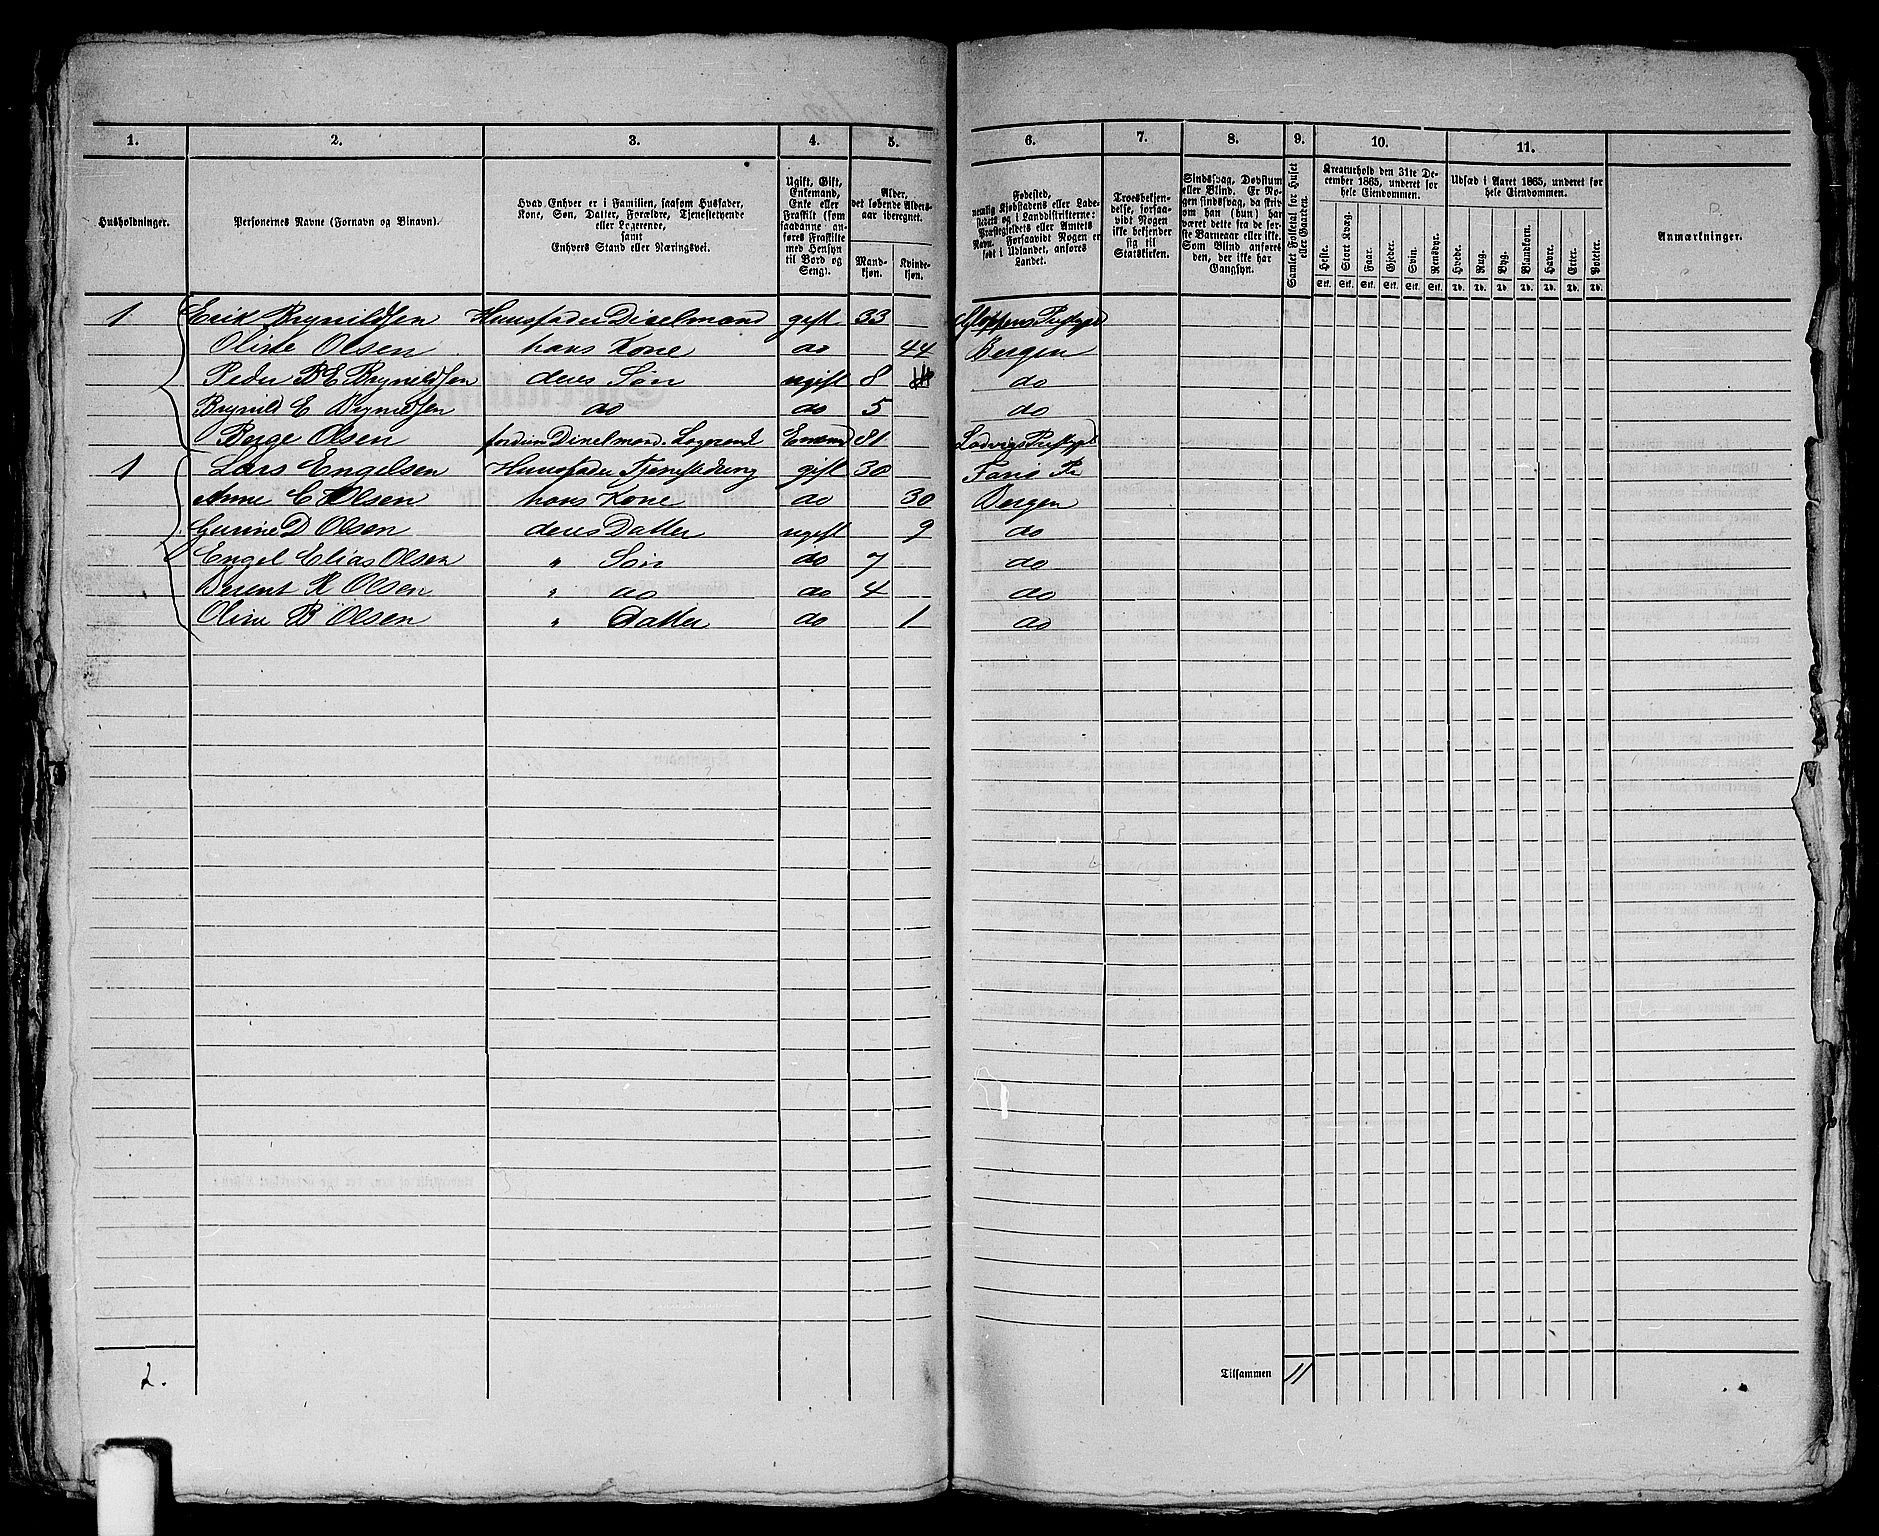 1. 2. 3. 4. 5. 6. 7. 8. 9. 10. 11.
Husholdninger.
Personernes Navne (Fornavn og Binavn).
Hvad Enhver er i Familien, saasom Husfader,
Kone, Søn, Datter, Forældre, Tjenestetyende
eller Logerende,
samt
Enhvers Stand eller Næringsvei.
Ugift, Gift,
Enkemand,
Enke eller
Fraskilt (som
saadanne an-
føres Fraskilte
med Hensyn
til Bord og
Seng).
Alder,
det løbende Alders-
aar iberegnet.
Mand-
kjøn.
Kvinde-
kjøn.
Fødested,
nemlig Kjøbstadens eller Lade-
stedets og i Landdistrikterne:
Præstegjeldets eller Amtets
Navn. Forsaavidt Nogen er
født i Udlandet, anføres
Landet.
Troesbekjen-
delse, forsaa-
vidt Nogen
ikke bekjender
sig til
Statskirken.
Sindssvag, Døvstum
eller Blind. Er No-
gen sindssvag, da skriv
om han (hun) har
været dette fra de før-
ste Barneaar eller ikke.
Som Blind anføres
den, der ikke har
Gangsyn.
Samlet Folketal for Huset
eller Gaarden.
Kreaturhold den 31te De-
cember 1865, underet for
hele Eiendommen.
Heste. Stort Kvæg. Faar. Gjeder. Svin. Rensdyr.
Stk. Stk. Stk. Stk. Stk. Stk.
Udsæd i Aaret 1865, underet for
hele Eiendommen.
Hvede. Rug. Byg. Blandkorn. Havre. Erter. Poteter.
Td. Td. Td. Td. Td. Td. Td.
Anmærkninger.
1 Erik Brynildsen Huusfader Dixelmand gift 33 Gloppens Prstgjd
Oliste Olsen hans Kone do 44 Bergen
Peder B E Bryneldsen deres Søn ugift 8 do
Brynild E Brynildsen do do 5 do
Børge Olsen fordun Dixelmand. Logerend Enkemd 81 Ladvigs Prstgjd
1 Lars Engelsen Huusfader gift 30 Fanø Pr
Anne C Olsen hans Kone do 30 Bergen
Gurine D Olsen deres Datter ugift 9 do
Engel Elias Olsen " Søn do 7 do
Berent K Olsen " do do 4 do
Oline B Olsen " Datter do 1 do
2. Tilsammen 11